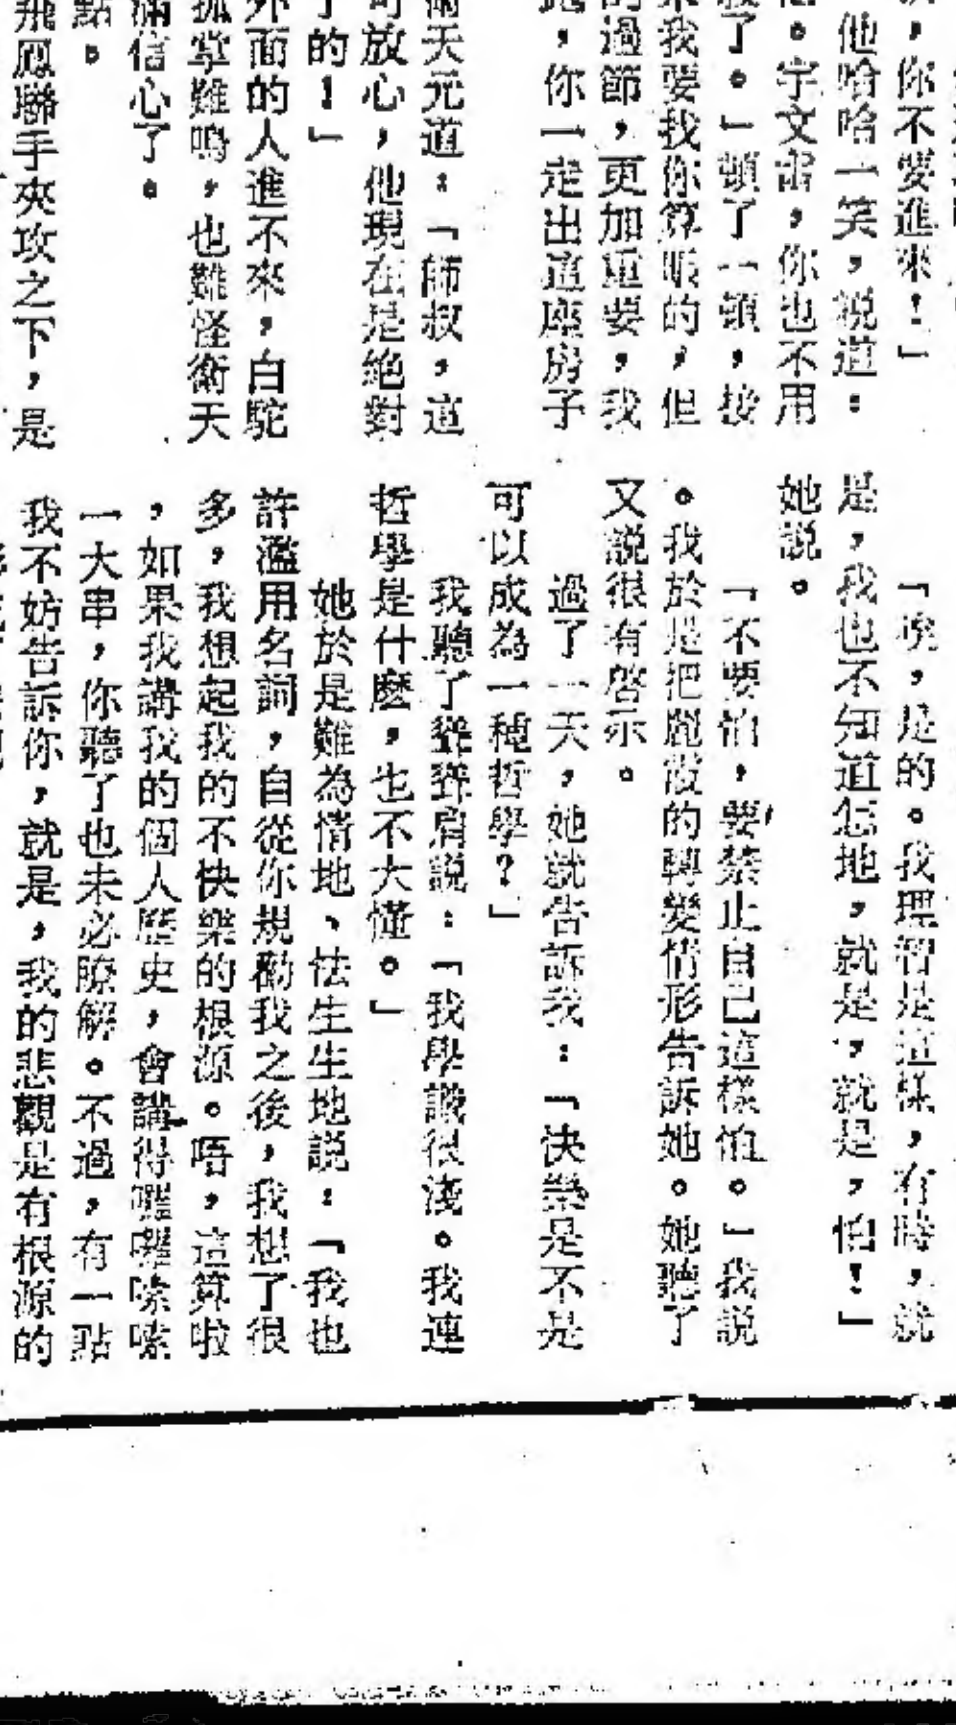 ，你不要進來！」
他哈哈一笑，説道：
。宇文雷，你也不用
了。」頓了一頓，按
我要我你算賬的，但
過節，更加重要，我
，你一走出這座房子
天元道：「師叔，這
放心，他現在是絶對
的！」
外面的人進不來，白駝
孤掌難鳴，也難怪衛天
滿信心了。
點。
飛鳳聯手夾攻之下，是
「唉，是的。我理智是這樣，有時，就
是，我也不知道怎地，就是，就是，怕！」
她説。
「不要怕，要禁止自己這樣怕。」我説
。我於是把的轉變情形告訴她。她聽了
又説很有啓示。
過了一天，她就告訴我：「快樂是不是
可以成為一種哲學？」
我聽了聳聳肩説：「我學識很淺。我連
哲學是什麽，也不大懂。」
她於是難為情地、怯生生地説：「我也
許濫用名詞，自從你規勸我之後，我想了很
多，我想起我的不快樂的根源。唔，這算啦
，如果我講我的個人歷史，會講得囉囉嗦嗦
一大串，你聽了也未必瞭解。不過，有一點
我不妨告訴你，就是，我的悲觀是有根源的